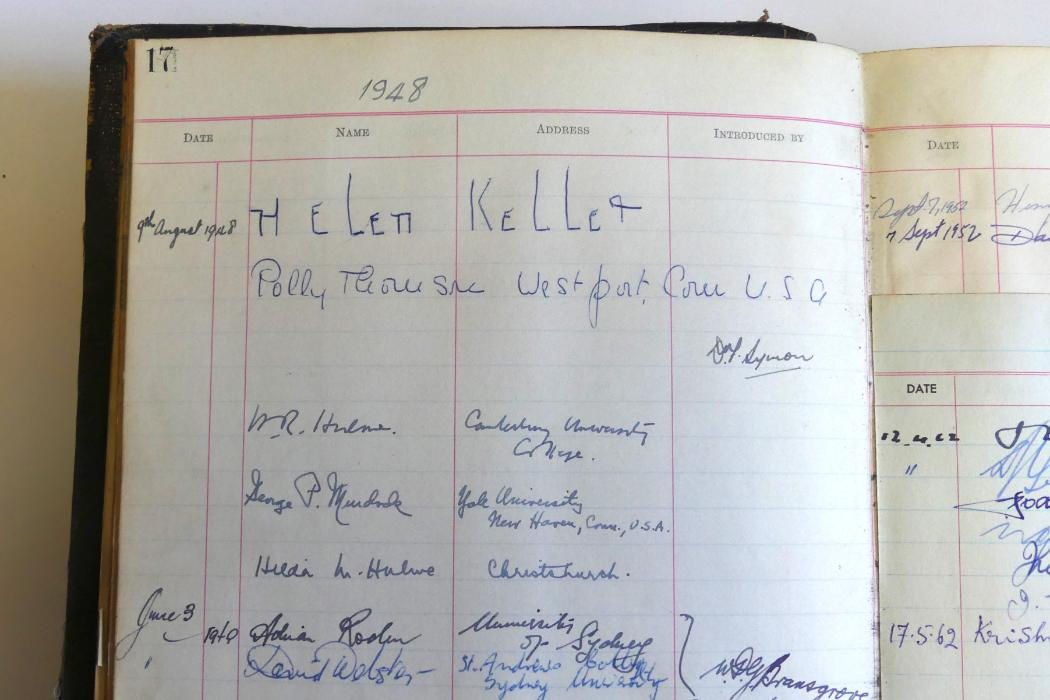 17
1948
DATE NAME ADDRESS INTRODUCED BY
9th August 1948 HELEN KELLER
Polly Thomson Westport, Conn U.S.A
D.F. Symon
W.R. Hulme. Canterbury University
College.
George P. Murdock Yale University
New Haven, Conn., U.S.A.
Hilda M. Hulme Christchurch.
June 3
1948 Adrian Roden University
of Sydney
" David Webster St. Andrews College
Sydney University
DATE
Sept. 7, 1952
7 Sept 1952
DATE
12.4.62
"
17.5.62 Krish